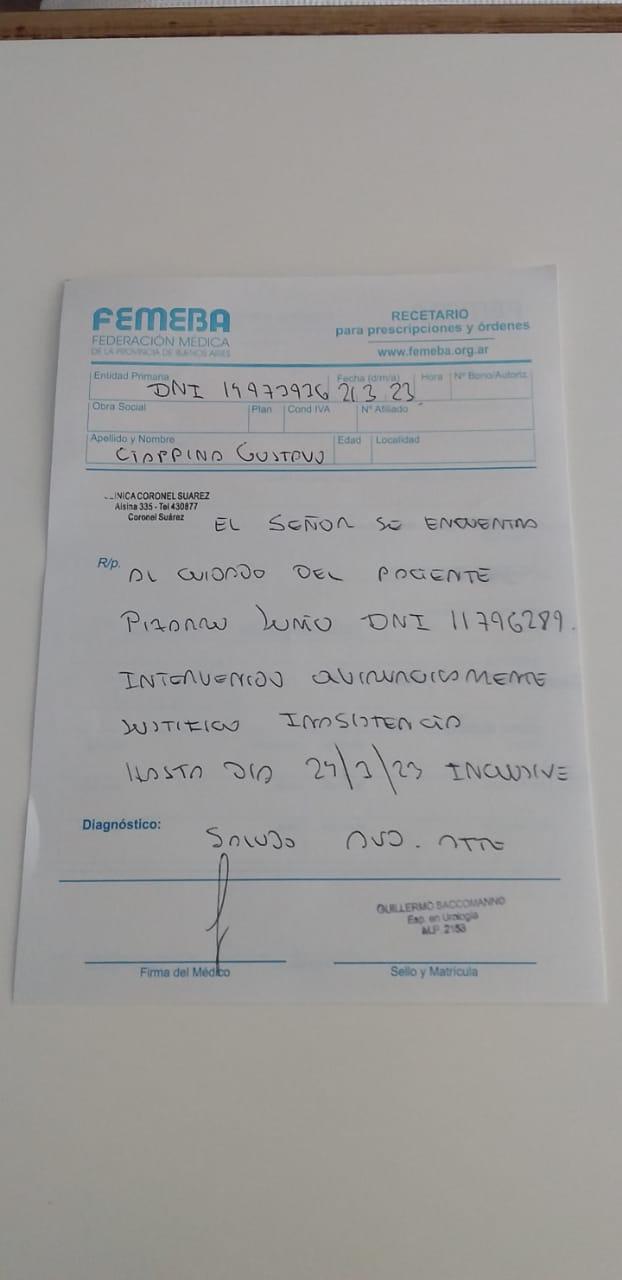 FEMEBA
FEDERACIÓN MÉDICA
DE LA PROVINCIA DE BUENOS AIRES
RECETARIO
para prescripciones y órdenes
www.femeba.org.ar
Entidad Primaria DNI 14973936 Fecha (d/m/a) 21 3 23 Hora Nº Bono/Autoriz.
Obra Social Plan Cond IVA Nº Afiliado
Apellido y Nombre CIAPPINA GUSTAVO Edad Localidad
CLINICA CORONEL SUAREZ
Alsina 335 - Tel 430877
Coronel Suárez
EL SEÑOR SE ENCUENTRA
R/p. AL CUIDADO DEL PACIENTE
PIZARRO DNI 11796289.
INTERVENIDO QUIRURGICAMENTE
JUSTIFICO INASISTENCIA
HASTA DIA 24/3/23 INCLUSIVE
Diagnóstico: SALUDO AUD. ATTE
GUILLERMO BACCOMANNO
Esp. en Urología
M.P. 2153
Firma del Médico Sello y Matrícula